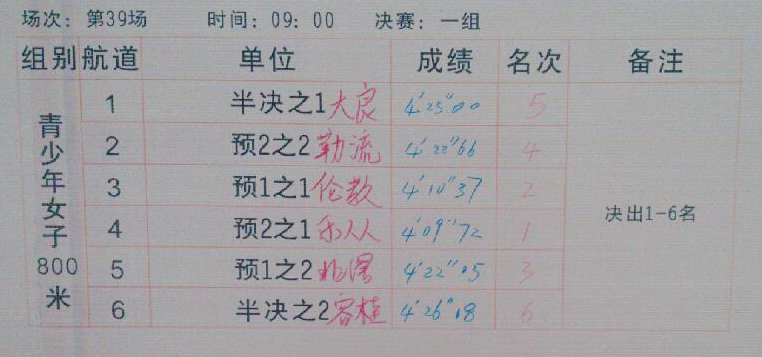 场次: 第39场 时间: 09: 00 决赛: 一组
组别 航道 单位 成绩 名次 备注
青少年女子800米
1 半决之1 大良 4'25"00 5
2 预2之2 勒流 4'22"66 4
3 预1之1 伦教 4'10"37 2
4 预2之1 乐从 4'09"72 1
5 预1之2 北滘 4'22"05 3
6 半决之2 容桂 4'26"18 6
决出1-6名